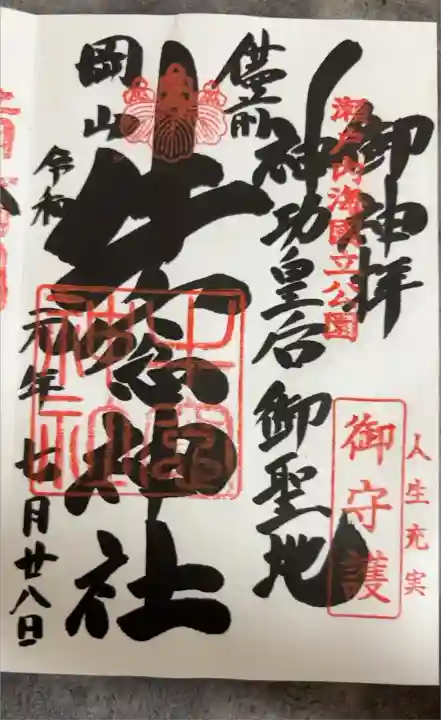 御神拝
瀬戸内海国立公園
人生充実
御守護
備前
神功皇后御聖地
岡山
牛窓神社
牛窓
神社
令和元年七月廿八日